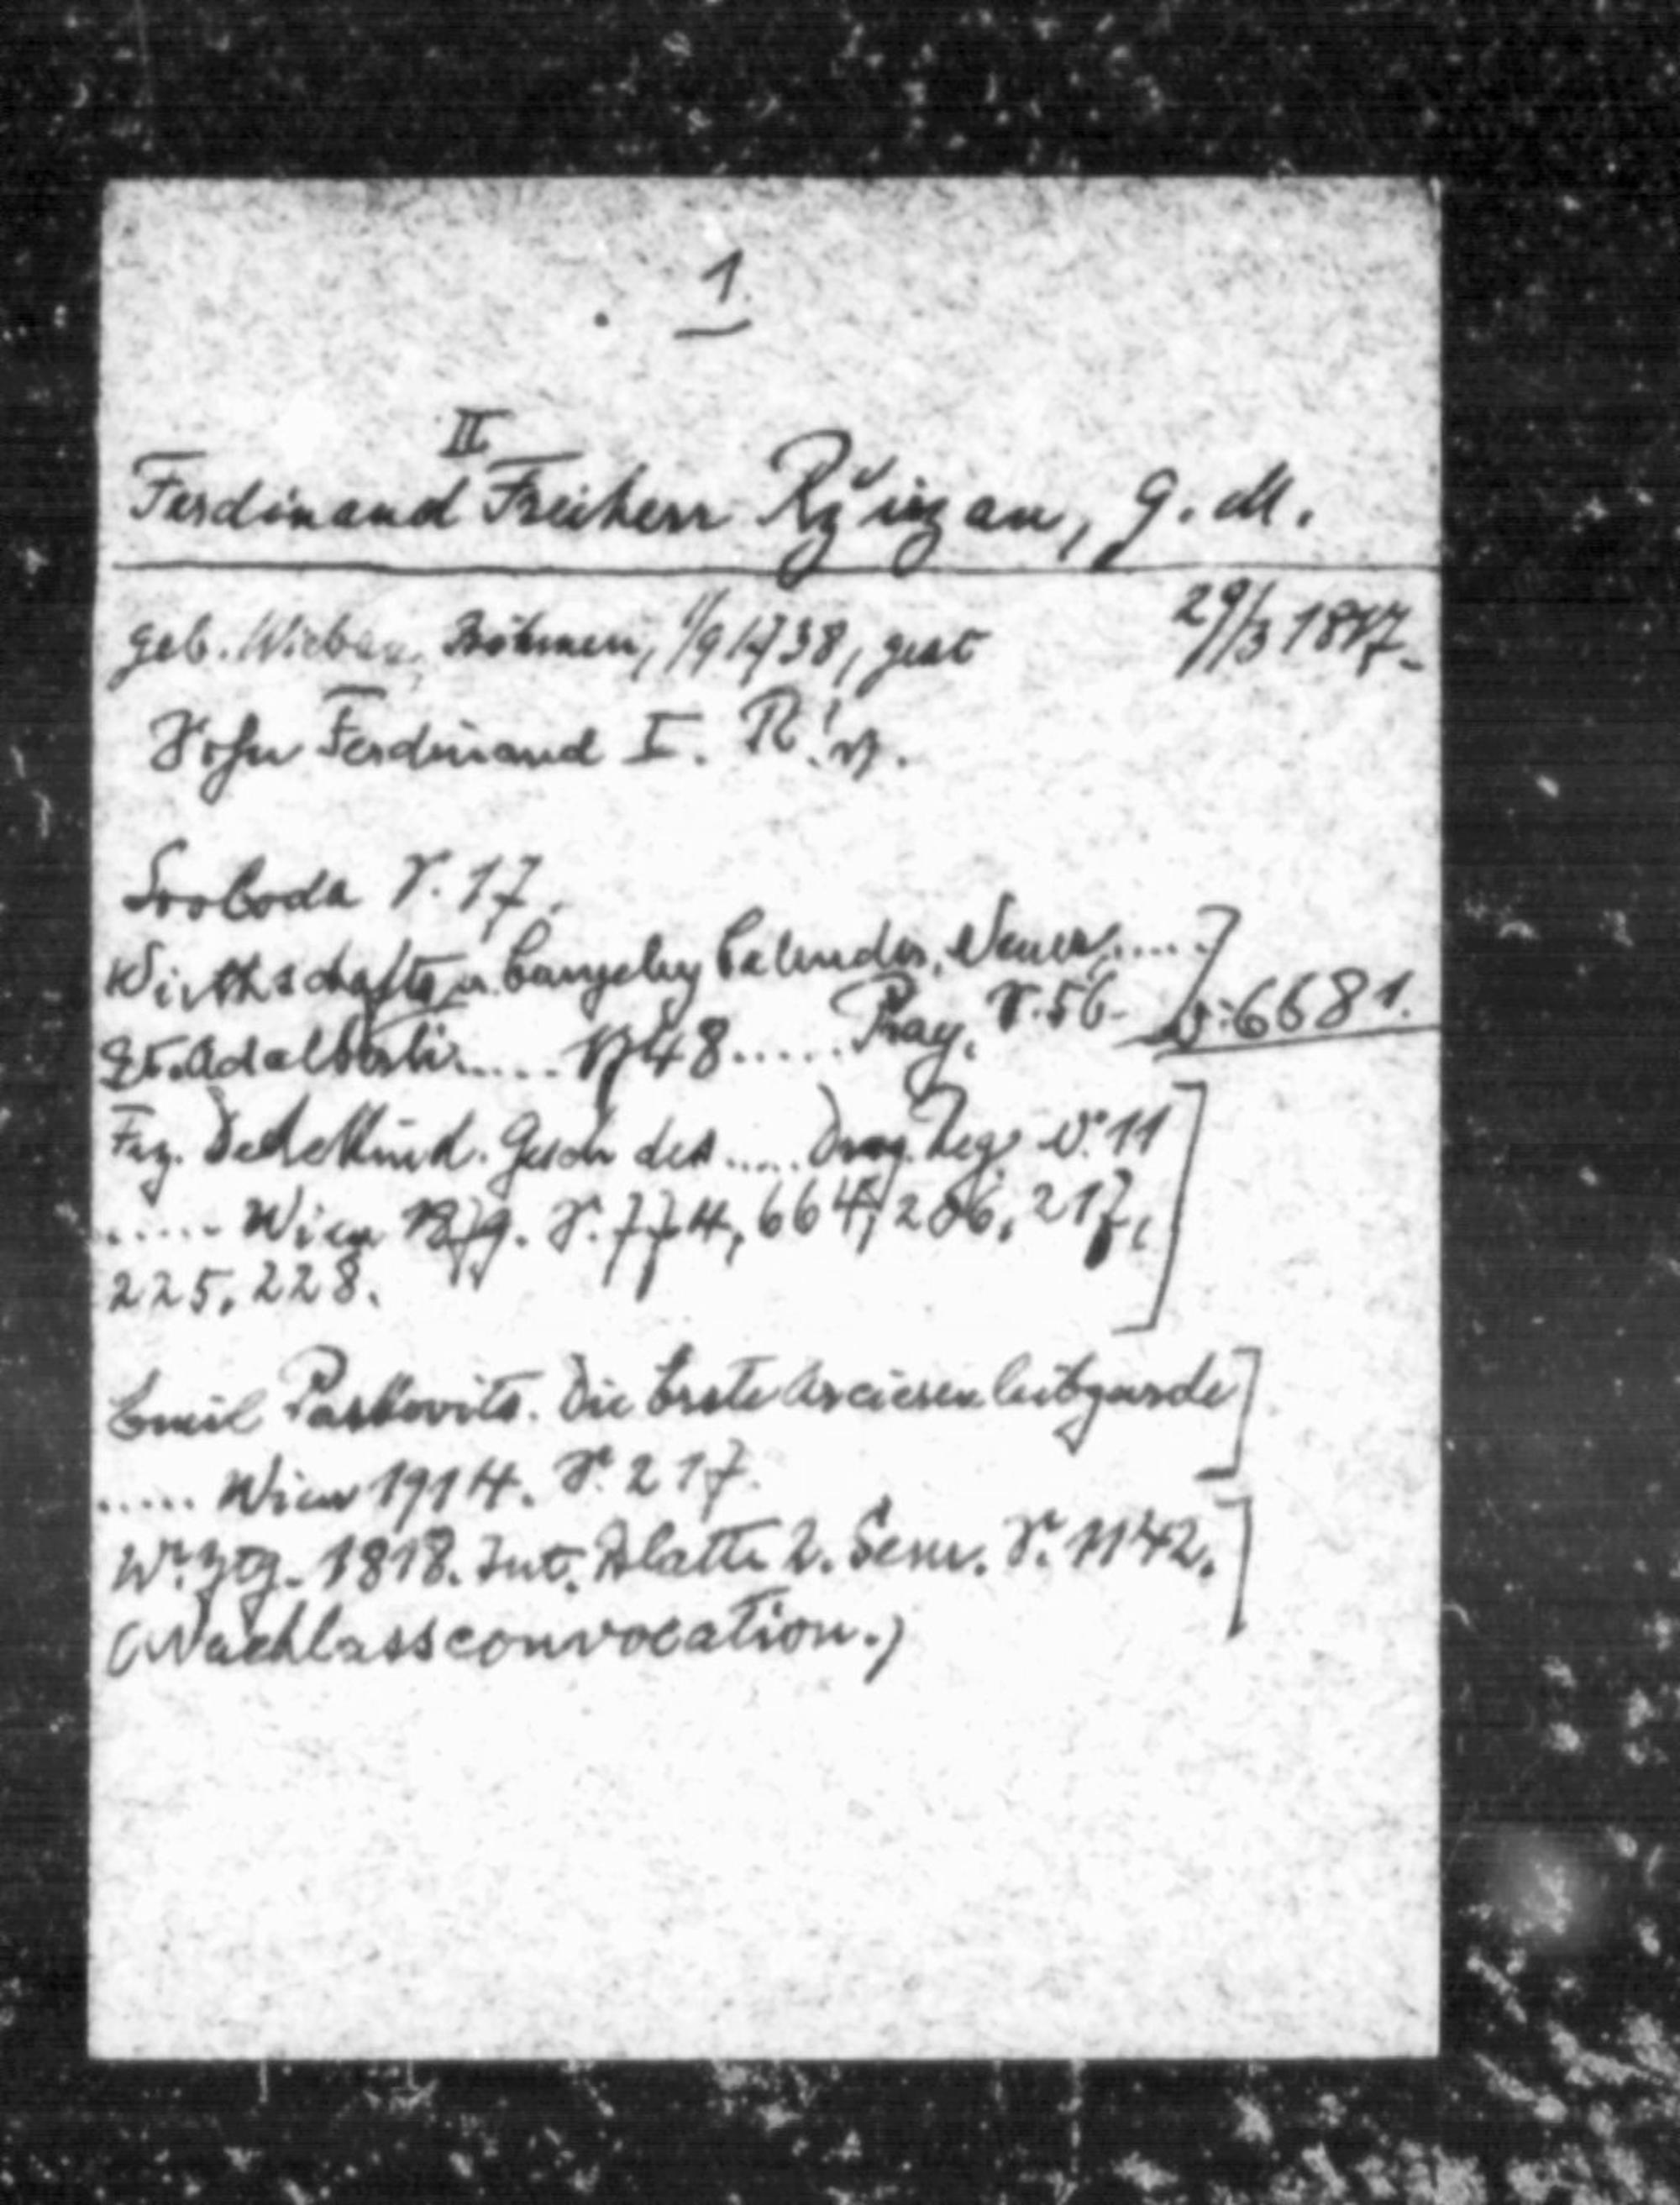 1.
II
Ferdinand Freiherr Rži̊zan, G. M.
geb. Böhmen, 1/9 1738, gest 29/3 1817.
Sohn Ferdinand I. R! v.
Svoboda S. 17.
Wirthschafts u. Canzeley Calender, Neuer.....
St. Adalberti..... 1748..... Prag, S. 56. N: 6681.
Frz. Dedekind. Gesch des ..... Drag. Reg. N. 11
..... Wien 1879. S. 774, 664, 206, 217,
225, 228.
Emil Paskovits. Die Erste Arcieren leibgarde
..... Wien 1914. S. 217.
Wr. Ztg. 1818. Int. Blatt 2. Sem. S. 1142.
(Nachlassconvocation.)